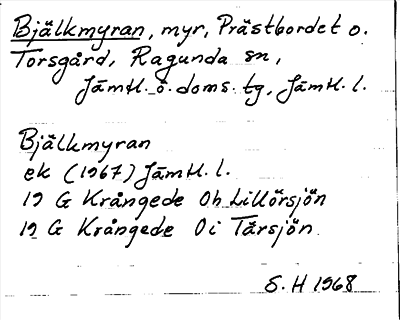 Bjälkmyran, myr, Prästbordet o.
Torsgård, Ragunda sn,
Jämtl. ö. doms. tg, Jämtl. l.
Bjälkmyran
ek (1967) Jämtl. l.
19 G Krångede 0h Lillörsjön
19 G Krångede 0i Tårsjön
S. H 1968